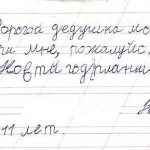 дорогой дедушка мо
ри мне, пожалуйс
Новый год план
11 лет.